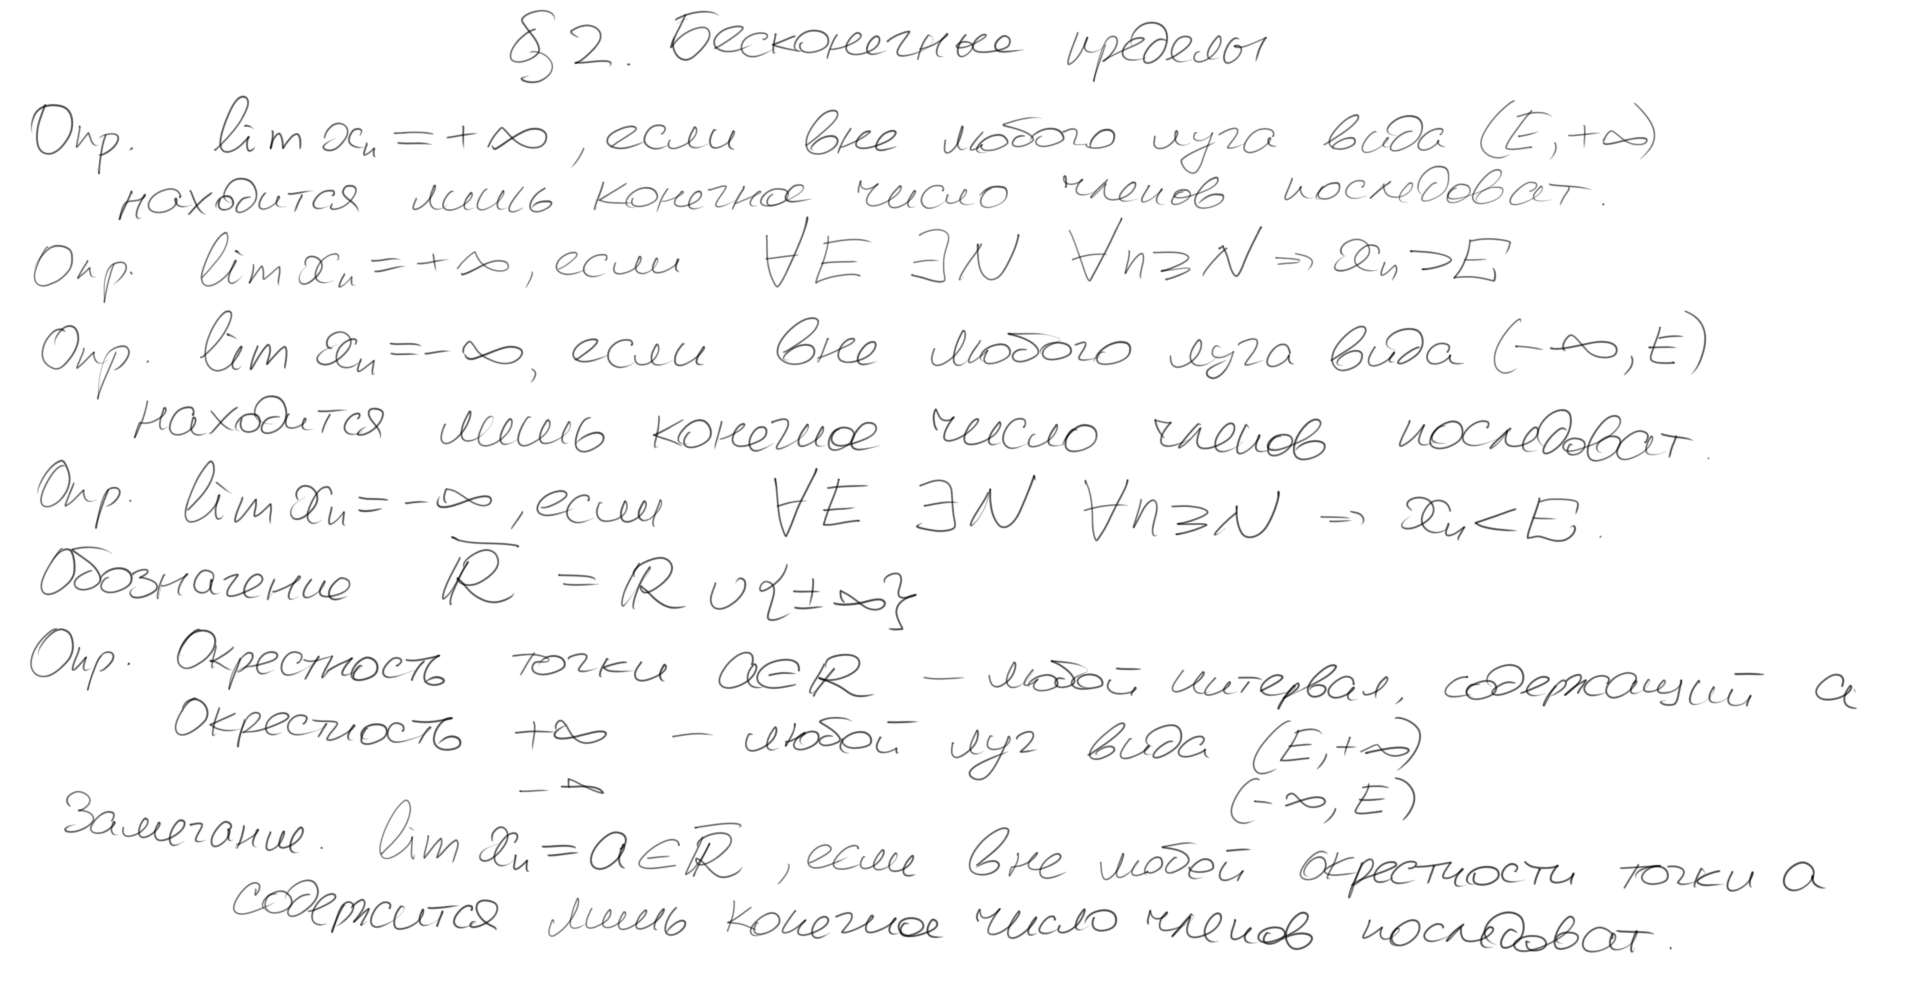 § 2. Бесконечные пределы
Опр. lim xₙ = +∞, если вне любого луча вида (E, +∞)
находится лишь конечное число членов последоват.
Опр. lim xₙ = +∞, если ∀E ∃N ∀n≥N ⇒ xₙ > E
Опр. lim xₙ = -∞, если вне любого луча вида (-∞, E)
находится лишь конечное число членов последоват.
Опр. lim xₙ = -∞, если ∀E ∃N ∀n≥N ⇒ xₙ < E.
Обозначение ℝ̅ = ℝ ∪ {±∞}
Опр. Окрестность точки a∈ℝ – любой интервал, содержащий a
Окрестность +∞ – любой луч вида (E, +∞)
-∞ (-∞, E)
Замечание. lim xₙ = a ∈ ℝ̅, если вне любой окрестности точки a
содержится лишь конечное число членов последоват.